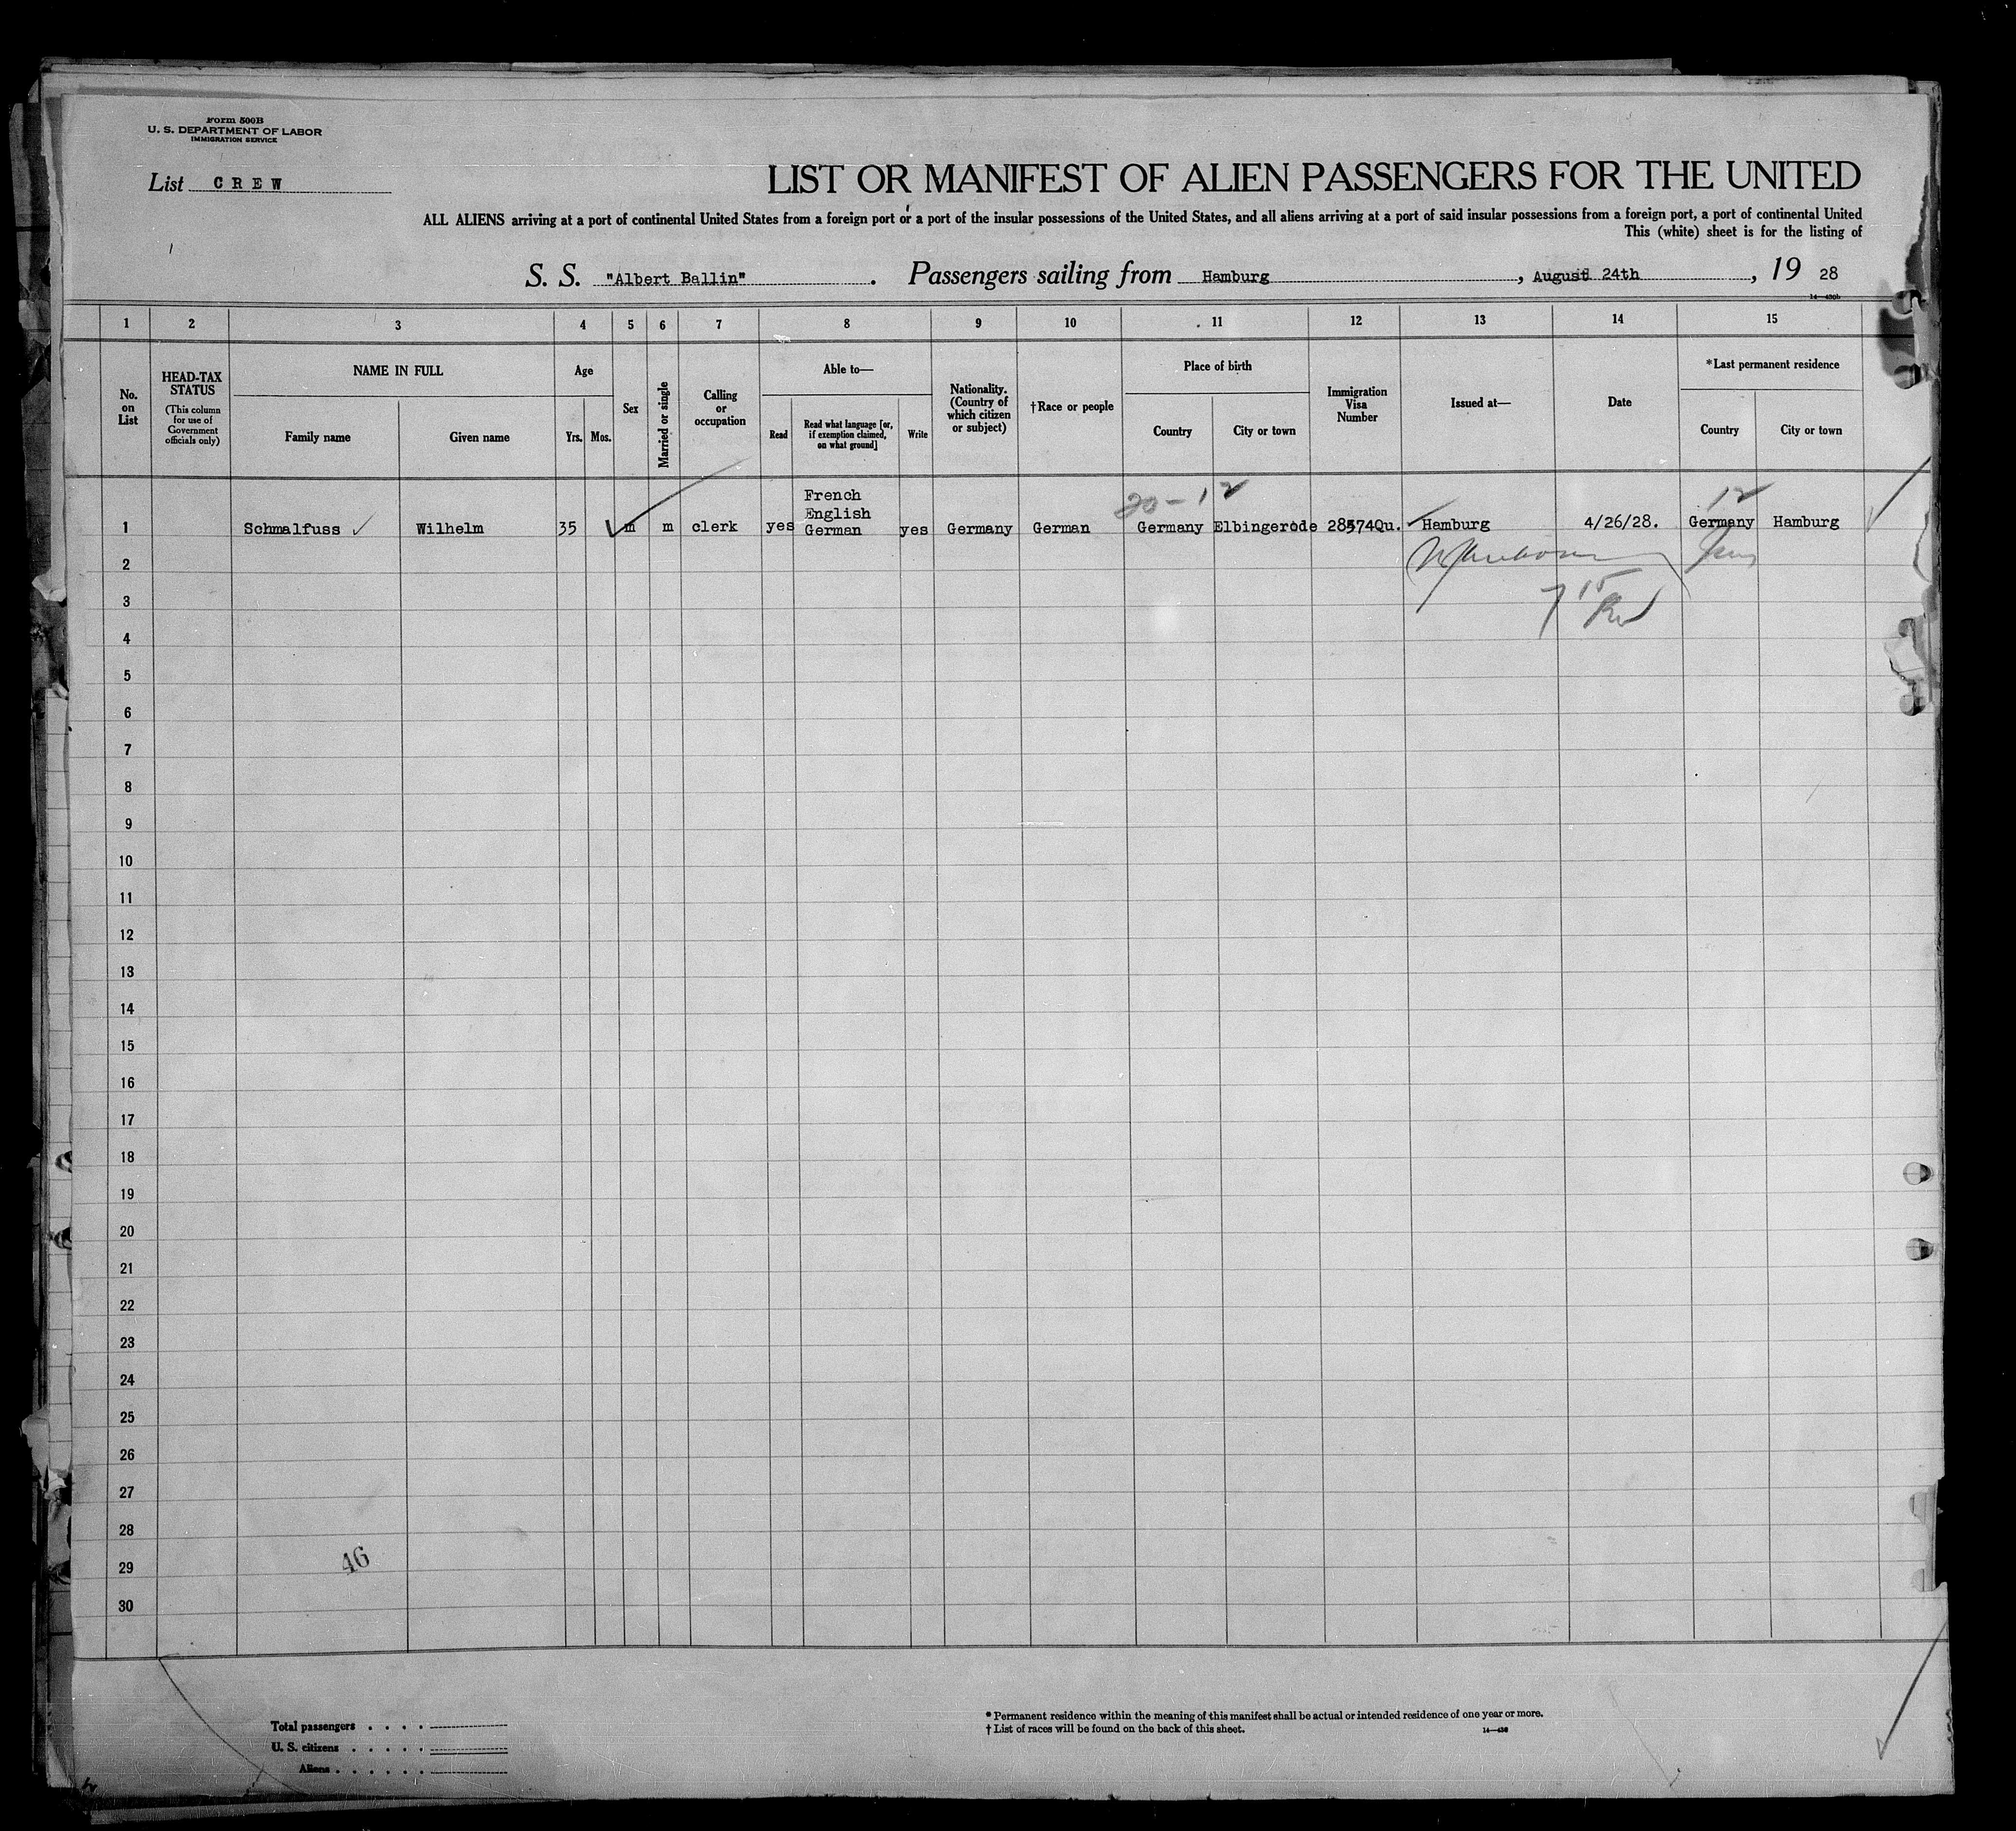 Form 500B
U. S. DEPARTMENT OF LABOR
IMMIGRATION SERVICE
List CREW
LIST OR MANIFEST OF ALIEN PASSENGERS FOR THE UNITED
ALL ALIENS arriving at a port of continental United States from a foreign port or a port of the insular possessions of the United States, and all aliens arriving at a port of said insular possessions from a foreign port, a port of continental United
This (white) sheet is for the listing of
S. S. "Albert Ballin". Passengers sailing from Hamburg, August 24th, 19 28
14—430b
1 2 3 4 5 6 7 8 9 10 11 12 13 14 15
No. on List
HEAD-TAX STATUS
(This column for use of Government officials only)
NAME IN FULL
Family name Given name
Age
Yrs. Mos.
Sex
Married or single
Calling or occupation
Able to—
Read
Read what language [or, if exemption claimed, on what ground]
Write
Nationality. (Country of which citizen or subject)
†Race or people
Place of birth
Country City or town
Immigration Visa Number
Issued at—
Date
*Last permanent residence
Country City or town
20-12 12
French
English
1 Schmalfuss Wilhelm 35 m m clerk yes German yes Germany German Germany Elbingerode 28574Qu. Hamburg 4/26/28. Germany Hamburg
2
3
4
5
6
7
8
9
10
11
12
13
14
15
16
17
18
19
20
21
22
23
24
25
26
27
28
29
30
46
Total passengers . . . .
U. S. citizens . . . . .
Aliens . . . . . .
* Permanent residence within the meaning of this manifest shall be actual or intended residence of one year or more.
† List of races will be found on the back of this sheet. 14—430